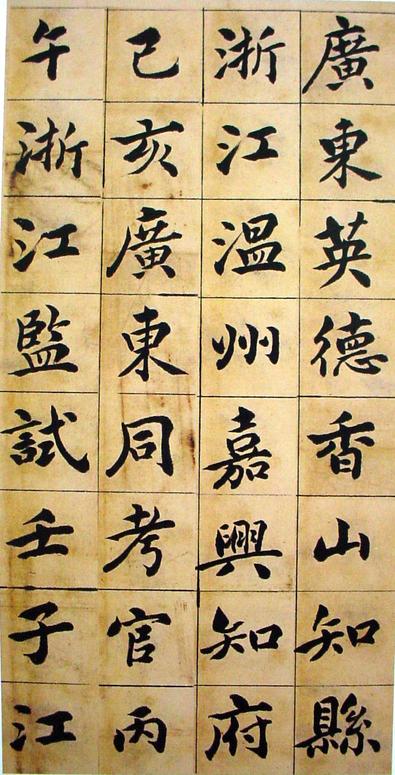 廣東英德香山知縣
浙江温州嘉興知府
己亥廣東同考官丙
午浙江監試壬子江